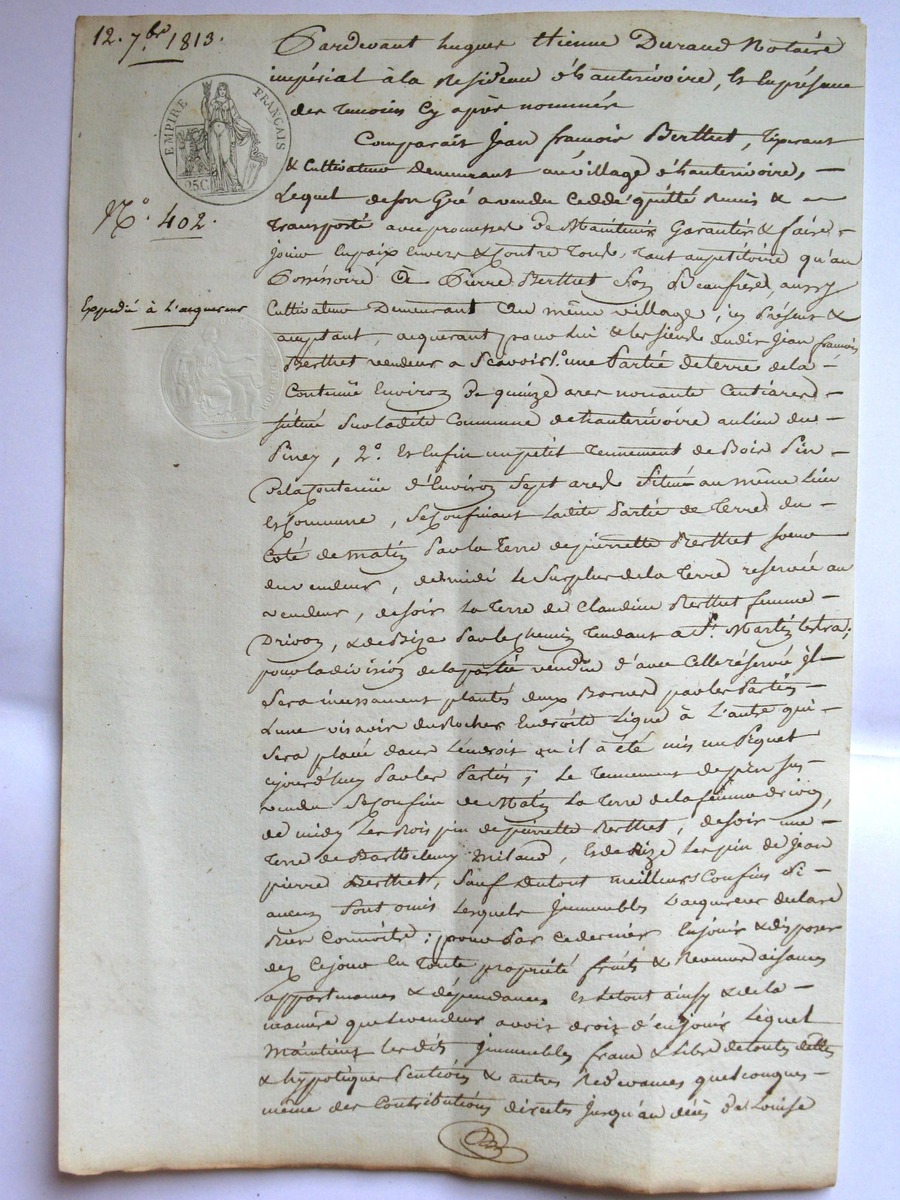 12. 7.br 1813.
EMPIRE FRANÇAIS
25C
N.o 402.
Expedié à L'acquereur
Pardevant hugues Etienne Durand Notaire
impérial à la Residence d'hauterivoire, & en présence
des Temoins Cy après nommés
Comparait Jean françois Berthet,
& Cultivateur demeurant au village d'hauterivoire, —
Lequel de son Gré a vendu Ceddé quitté Remis &
Transporté avec promesse de Maintenir Garantir & faire
jouir En paix Envers & Contre Tous, tant au petitoire qu'au
Possessoire à Pierre Berthet Son Beaufrère, aussy
Cultivateur Demeurant Au même village, icy Présent &
acceptant, acquerant pour lui & les siens dudit Jean françois
Berthet vendeur a Scavoir 1.o une Partie de terre de la —
Contenüe Environ De quinze ares nonante Centiares —
située Sur la dite Commune de hauterivoire au lieu du
Piney, 2.o Et Enfin un petit Tennement de Bois Pin
De la Contenüe d'Environ Sept ares Situé au même Lieu
& Commune, Se Confinant la dite Partie de Terre du —
Coté de matin Par la Terre de pierrette Berthet soeur
du vendeur, de midi le Surplus de la Terre reservée au
vendeur, de soir La Terre de Claudine Berthet femme —
Drivon, & de Bize Par le Chemin Tendant a St. Martin lestra;
pour la division de la partie vendue d'avec Celle réservée il —
Sera incessament plantés deux Bornes par les Parties —
L'une vis à vis du Rocher En droite Ligne à L'autre qui —
Sera placée dans L'endroit ou il à été mis un Piquet
ejourd'huy Par les Parties; Le Tennement de pin sus —
vendu Se Confine de Matin La Terre de la femme drivon,
de midy Les Bois pin de pierrette Berthet, de soir une —
Terre de Barthelemy Milaud, & de Bize Les pin de Jean
pierre Berthet, Sauf du tout meilleurs Confins Si —
aucuns Sont omis Lesquels Immeubles L'acquereur declare
Bien Connoitre; pour Par ce dernier En jouir & disposer
dez Cejour En Toute propriété fruits & Revenus aisances
appartenances & dépendances & le tout ainsy & de la —
maniere que Le vendeur avoit droit d'en jouir Lequel
Maintient les dits Immeubles franc & Libre de toutes dettes
& hypotèques Pentions & autres Redevances quelconques —
même des Contributions directes jusqu'au décès De Louise